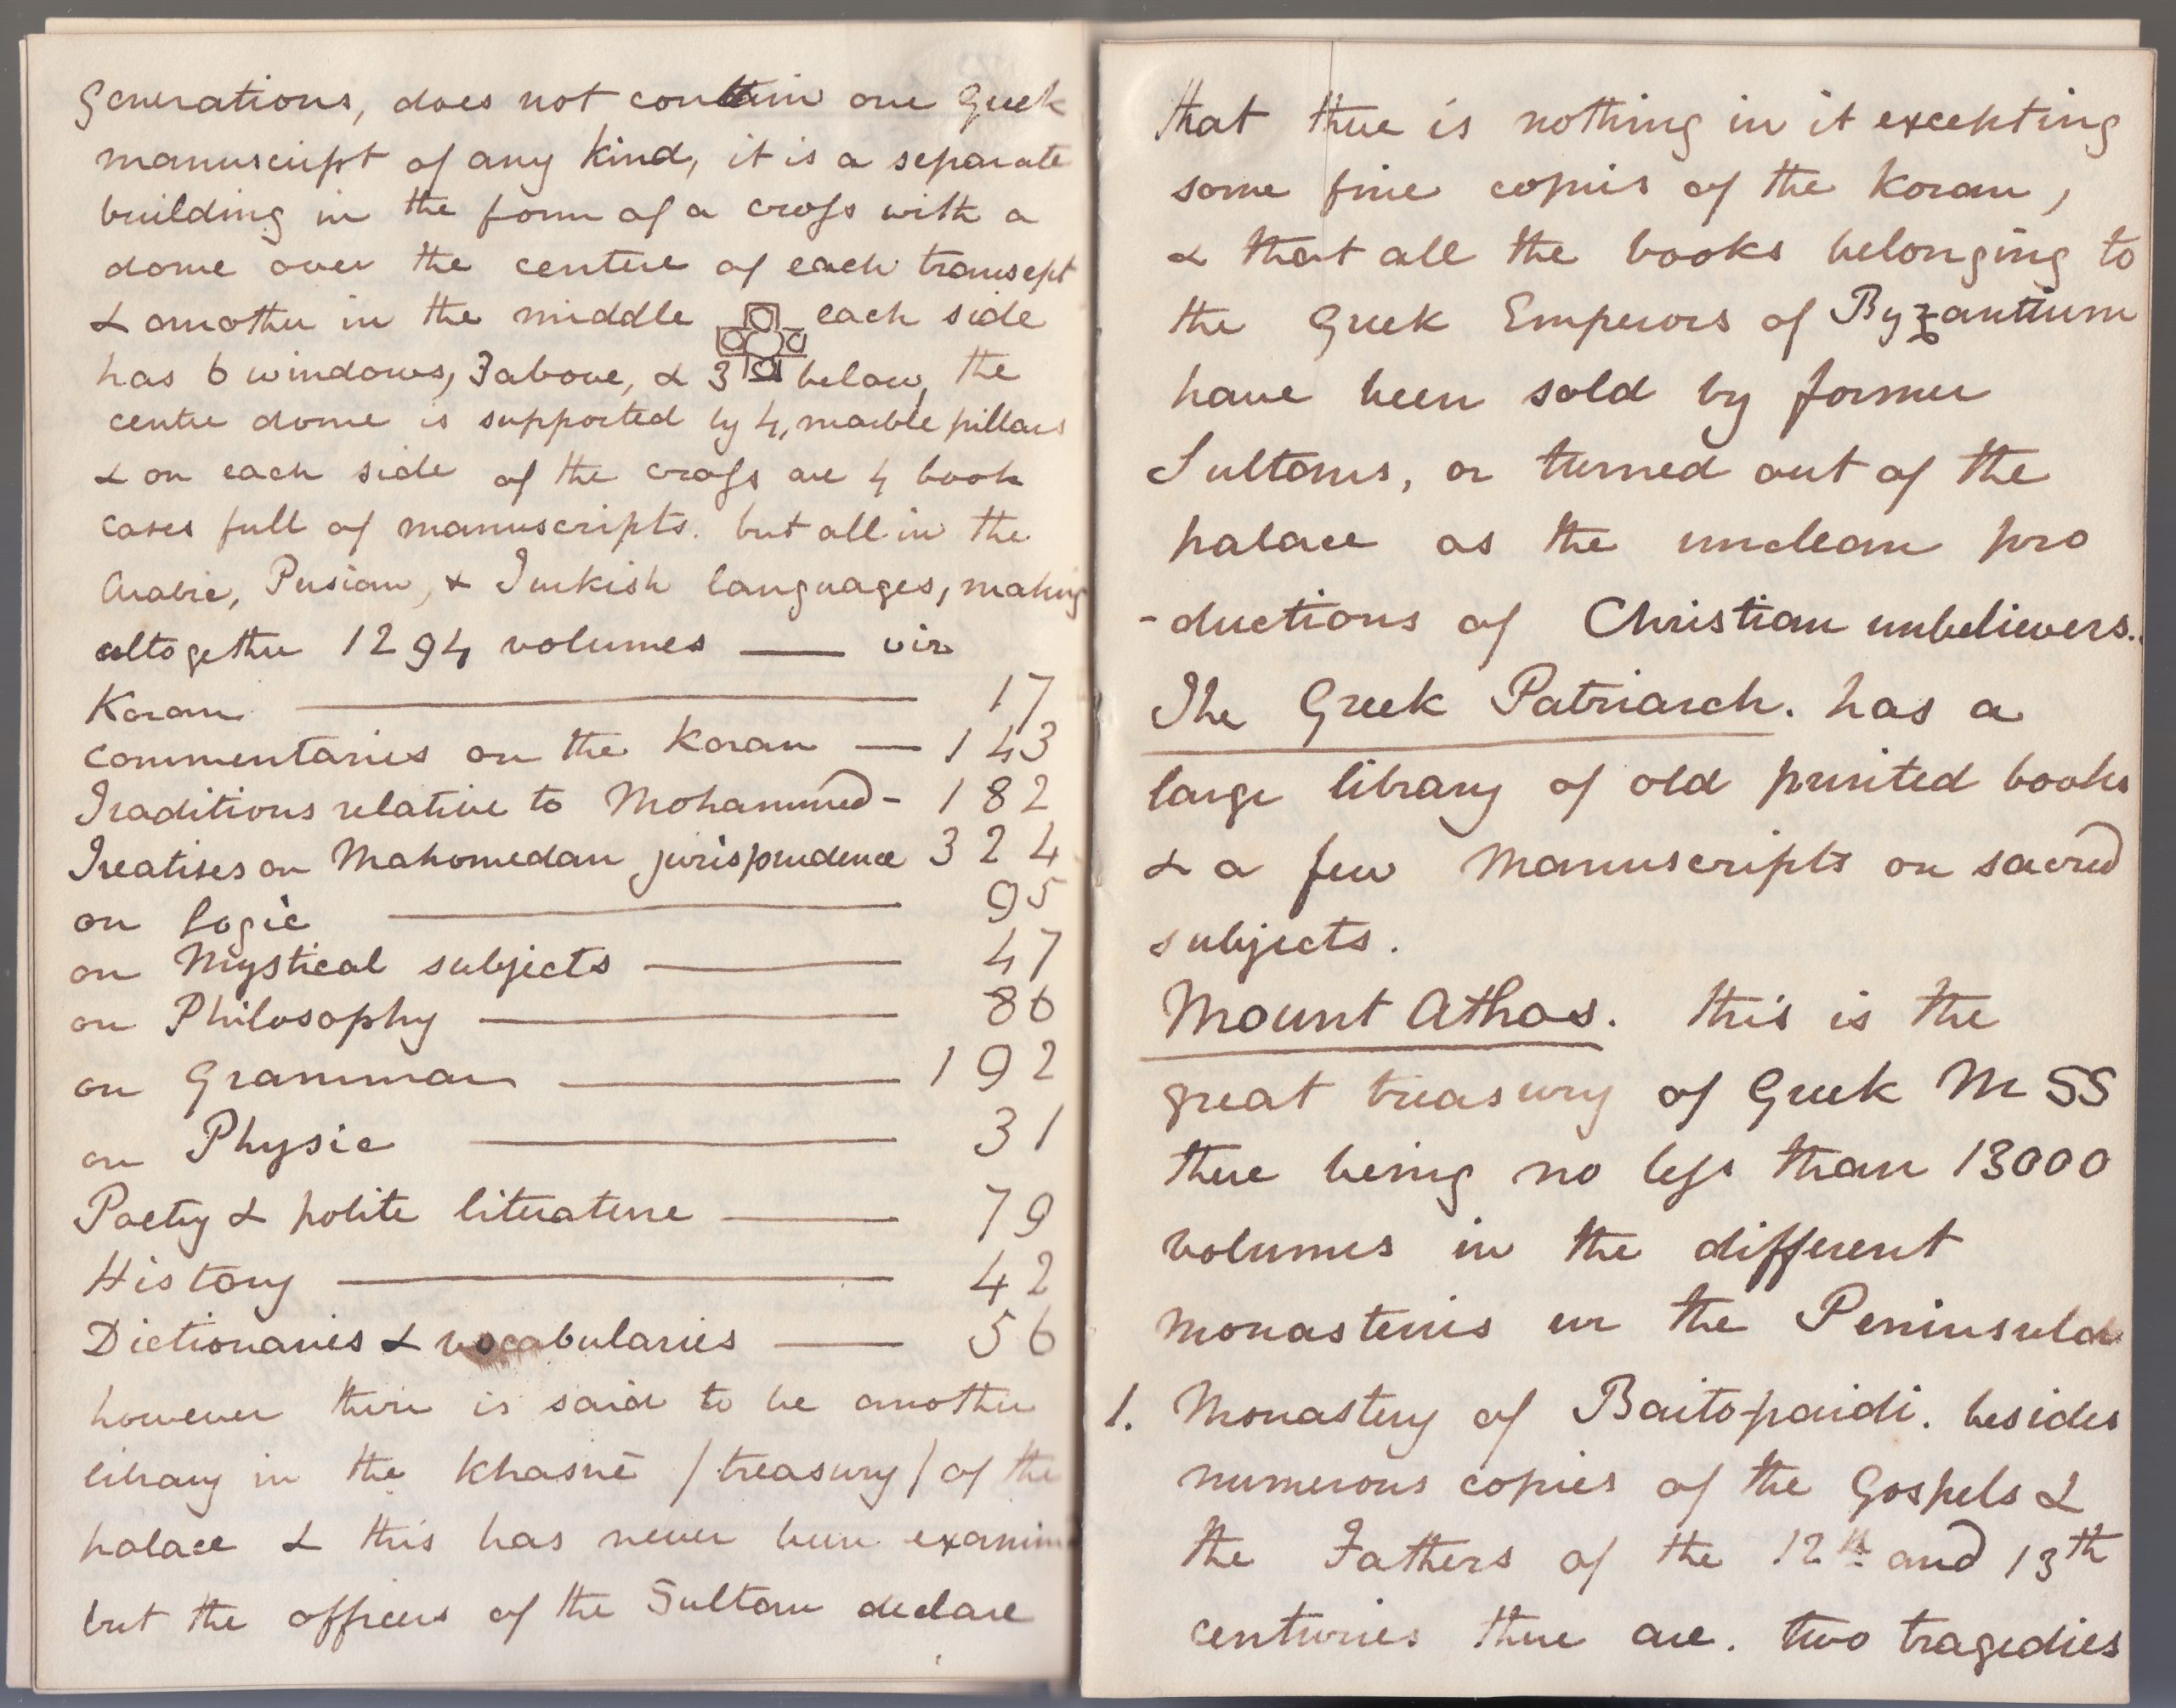 generations, does not contain one Greek
manuscript of any kind, it is a separate
building in the form of a cross with a
dome over the centre of each transept
& another in the middle each side
has 6 windows, 3 above, & 3 below, the
centre dome is supported by 4, marble pillars
& on each side of the cross are 4 book
cases full of manuscripts. but all in the
Arabic, Persian, & Turkish languages, making
altogether 1294 volumes — viz
Koran — 17
commentaries on the Koran — 143
Traditions relative to Mohammed - 182
Treatises on Mahomedan jurisprudence 324
on Logic — 95
on Mystical subjects — 47
on Philosophy — 86
on Grammar — 192
on Physic — 31
Poetry & polite literature — 79
History — 42
Dictionaries & vocabularies — 56
however there is said to be another
library in the Khasnè /treasury/ of the
palace & this has never been examin
but the officers of the Sultan declare
that there is nothing in it excepting
some fine copies of the Koran,
& that all the books belonging to
the Greek Emperors of Byzantium
have been sold by former
Sultans, or turned out of the
palace as the unclean pro
-ductions of Christian unbelievers.
The Greek Patriarch. has a
large library of old printed books
& a few manuscripts on sacred
subjects.
Mount Athos. this is the
great treasury of Greek MSS
there being no less than 13000
volumes in the different
monasteries in the Peninsula
1. Monastery of Baitopaidi. besides
numerous copies of the Gospels &
the Fathers of the 12th and 13th
centuries there are. two tragedies